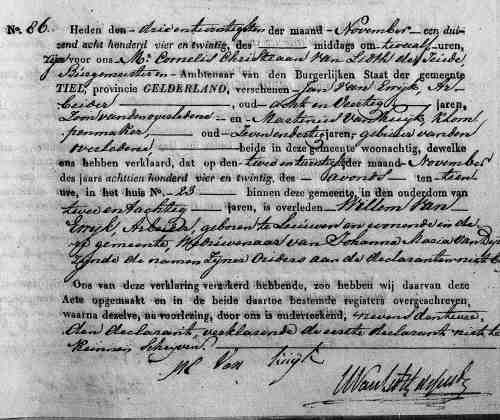 No. 86. Heden den drie en twintigsten der maand November een dui-
zend acht honderd vier en twintig, des middags om twaalf uren,
zijn voor ons Mr. Cornelis Christiaan Van Lidth de Jeude
Burgemeester Ambtenaar van den Burgerlijken Staat der gemeente
TIEL, provincie GELDERLAND, verschenen Jan Van Ewijk, Ar-
beider, oud acht en Veertig jaren,
Zoon van den overledene en Martinus Van Kuijk Klom
penmaker, oud Zeven en dertig jaren, gebuur van den
overledene, beide in deze gemeente woonachtig, dewelke
ons hebben verklaard, dat op den twee en twintigsten der maand November
des jaars achttien honderd vier en twintig, des avonds ten tien
ure, in het huis No. 23 binnen deze gemeente, in den ouderdom van
twee en tachtig jaren, is overleden Willem Van
Ewijk, Arbeider, geboren te Leeuwen en wonende in de
ze gemeente, Weduwenaar van Johanna Maria Van
zijnde de namen zijner Ouders aan de declaranten niet be
Ons van deze verklaring verzekerd hebbende, zoo hebben wij daarvan deze
Acte opgemaakt en in de beide daartoe bestemde registers overgeschreven,
waarna dezelve, na voorlezing, door ons is onderteekend, nevens den twee
den declarant, verklarende de eerste declarant niet te
kunnen schrijven.
M Van Kuijk